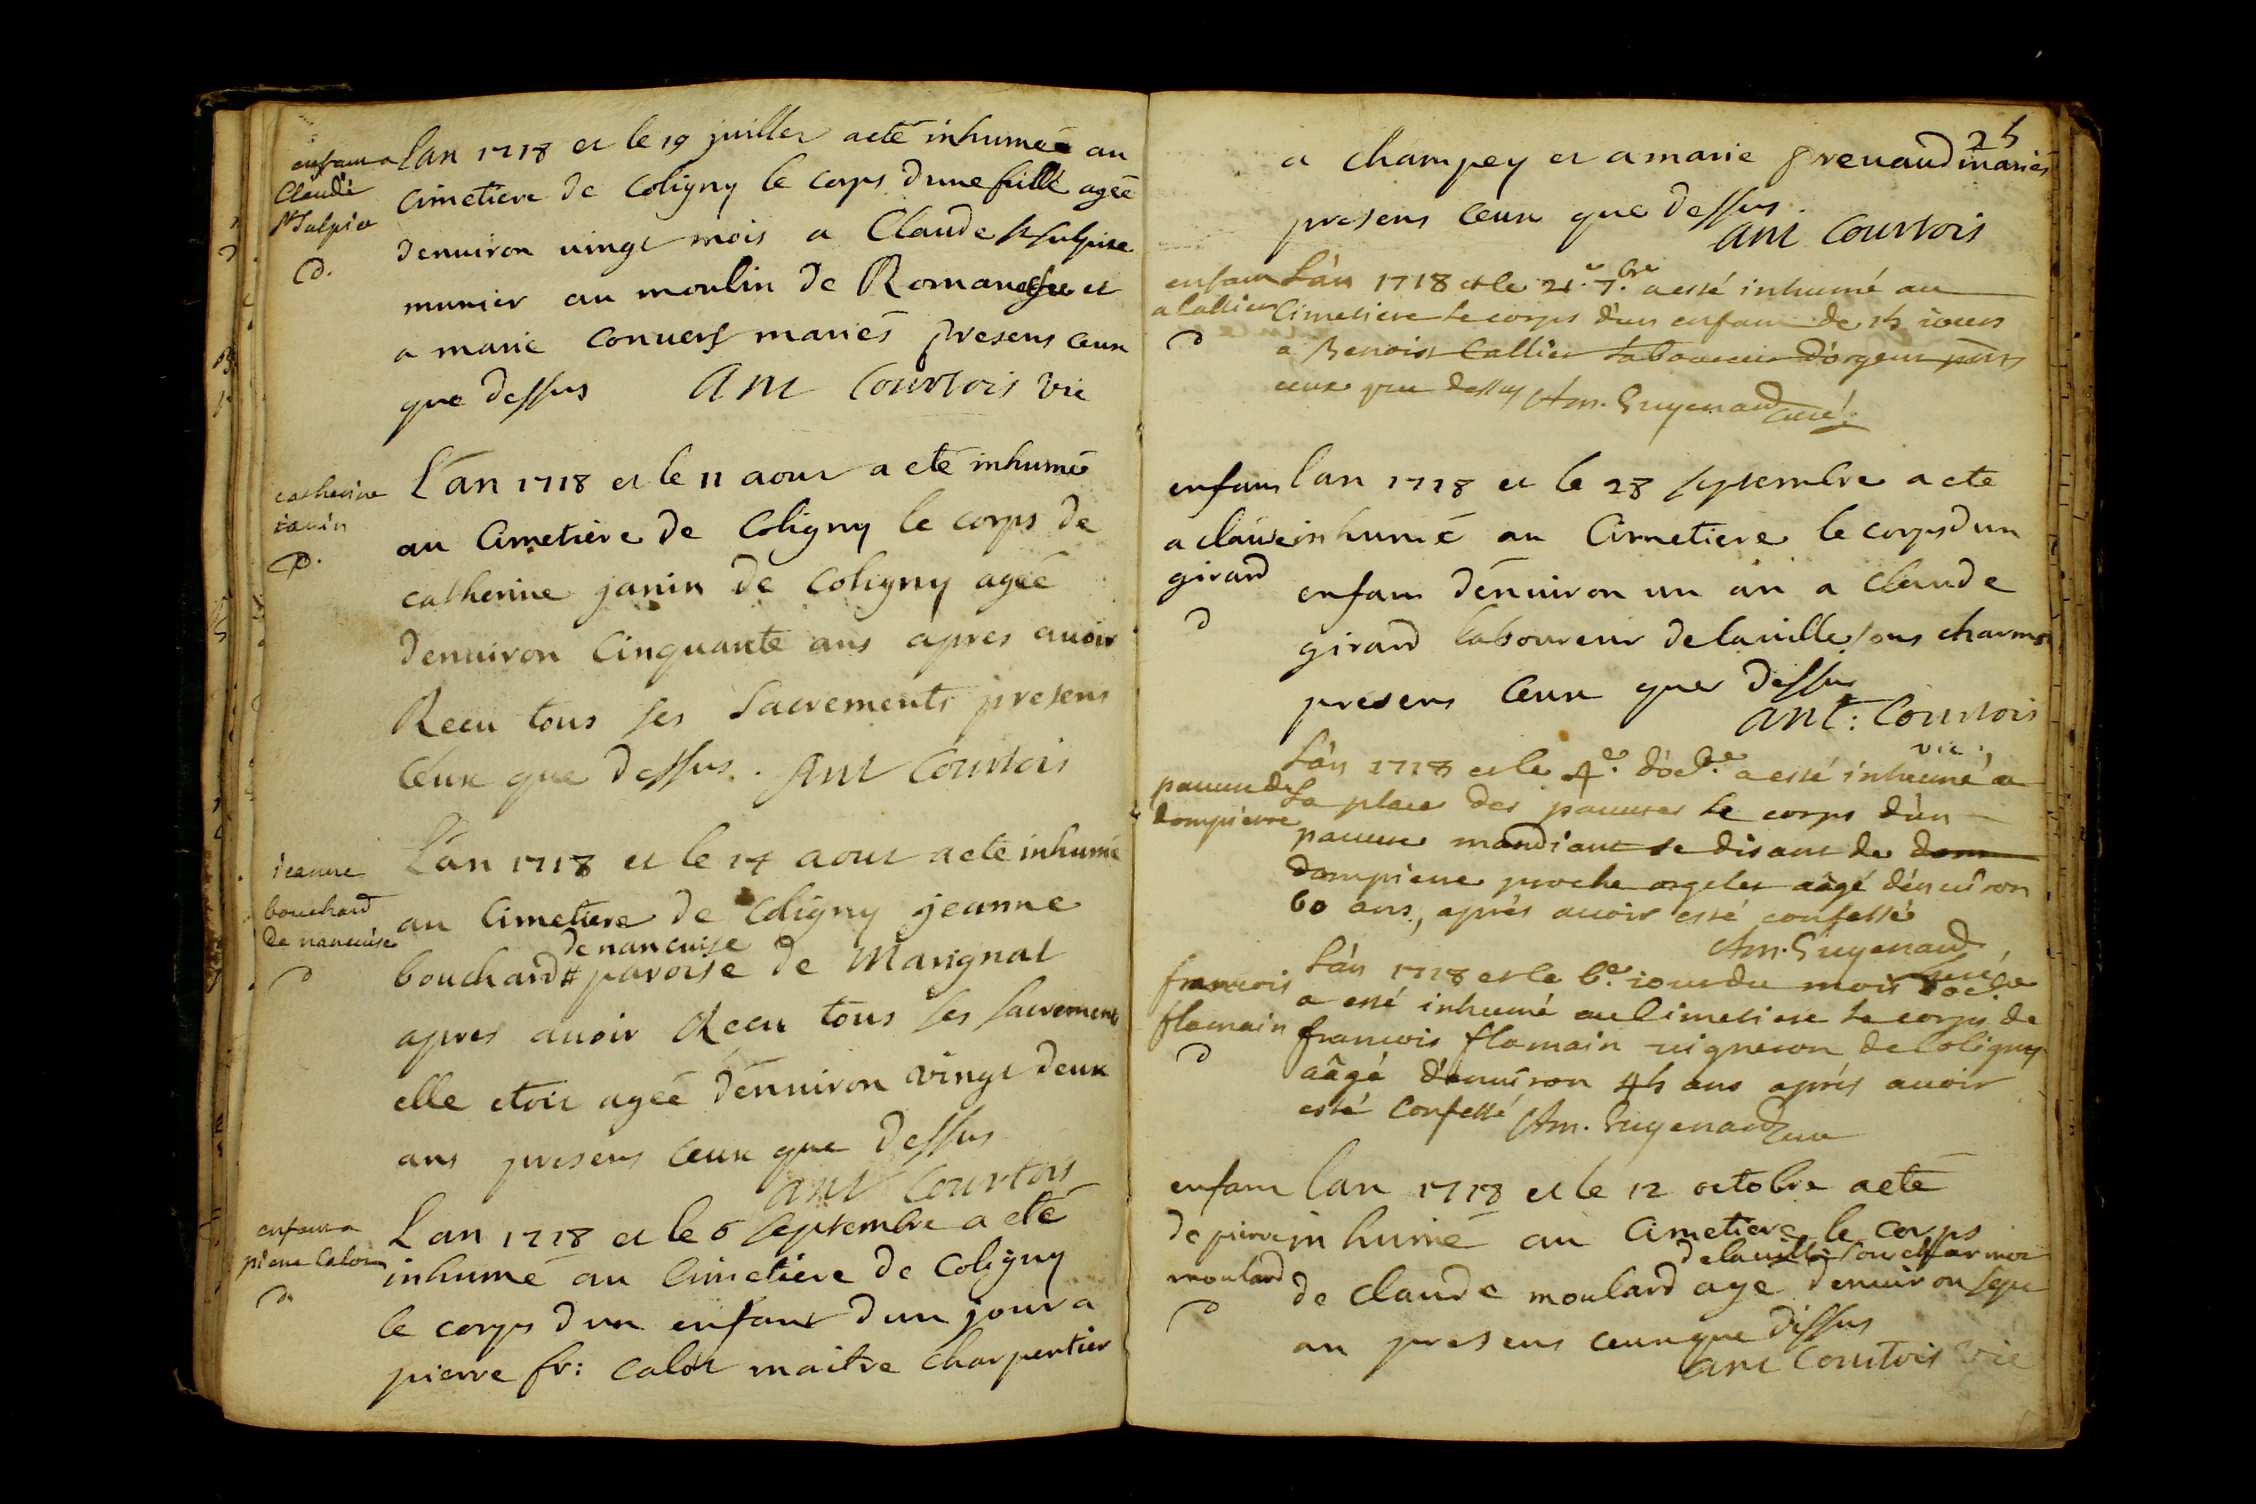 enfant a
Claude
St Sulpice
D.
Lan 1718 et le 19 juillet a eté inhumeé au
Cimetiere de Coligny le corps dune fille ageé
denuiron vingt mois a Claude St sulpice
munier au moulin de Romanesche et
a marie conuers mariés presens ceux
que dessus Ant Courtois vic
catherine
ianin
D.
L'an 1718 et le 11 aout a eté inhumé
au Cimetiere de Coligny le corps de
catherine janin de Coligny ageé
denuiron Cinquante ans apres auoir
Receu tous ses Sacrements presens
Ceux que dessus. Ant Courtois
ieanne
bouchard
de nancuise
D
L'an 1718 et le 14 aout a eté inhumé
au Cimetiere de Coligny jeanne
de nancuise
bouchard # paroise de Marignat
apres auoir Receu tous ses sacrements
elle etoit ageé dénuiron vingt deux
ans presens ceux que dessus
Ant Courtois
enfant a
pierre Calot
D.
L an 1718 et le 6 septembre a eté
inhumé au Cimetiere de Coligny
le corps dun enfant dun jour a
pierre fr: calot maitre charpentier
25
a champey et a marie preuaud mariés
presens ceux que dessus.
Ant Courtois
enfant
a Callier
D
L'an 1718 et le 21.e 7.bre a esté inhumé au
Cimetiere le corps d'un enfant de 15 iours
a Benoist Callier laboureur d'orgeat pñts
ceux que dessus Am. Guyenaud curé.
enfant
a claude
girard
D
lan 1718 et le 28 septembre a ete
inhumé au Cimetiere le corps dun
enfant dénuiron un an a claude
girard laboureur de lauille sous charmo
presens Ceux que dessus
Ant: Courtois
vic.
pauure de
dompierre
L'an 1718 et le 4.e d'oc.bre a esté inhumé a
la place des pauures le corps d'un
pauure mandiant se disant de dom
dompierre proche orgelet aâgé d'enuiron
60 ans, aprés auoir esté confessé
Am. Guyenaud
curé
francois
flamain
D
L'an 1718 et le 6.e iour du mois d'oc.bre
a esté inhumé au Cimetiere le corps de
francois flamain uigneron de Coligny
aâgé d'enuiron 45 ans aprés auoir
esté Confessé Am. Guyenaud cure
enfant
de pierre
moulard
D
lan 1718 et le 12 octobre a eté
inhumé au Cimetiere le corps
de lauille sou charmoe
de claude moulard age denuiron sept
an presens ceux que dessus
Ant Courtois vic